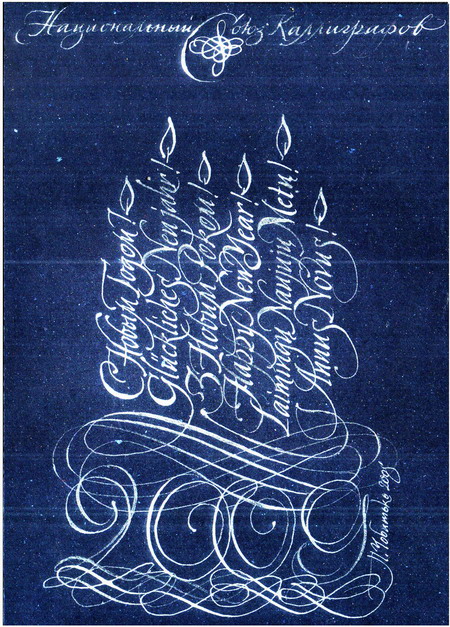 Национальный Союз Каллиграфов
С Новым Годом!
Glückliches Neujahr!
З Новим Роком!
Happy New Year!
Laimingų Naujųjų Metų!
Annus Novus!
2009
П. Чобитько 2009